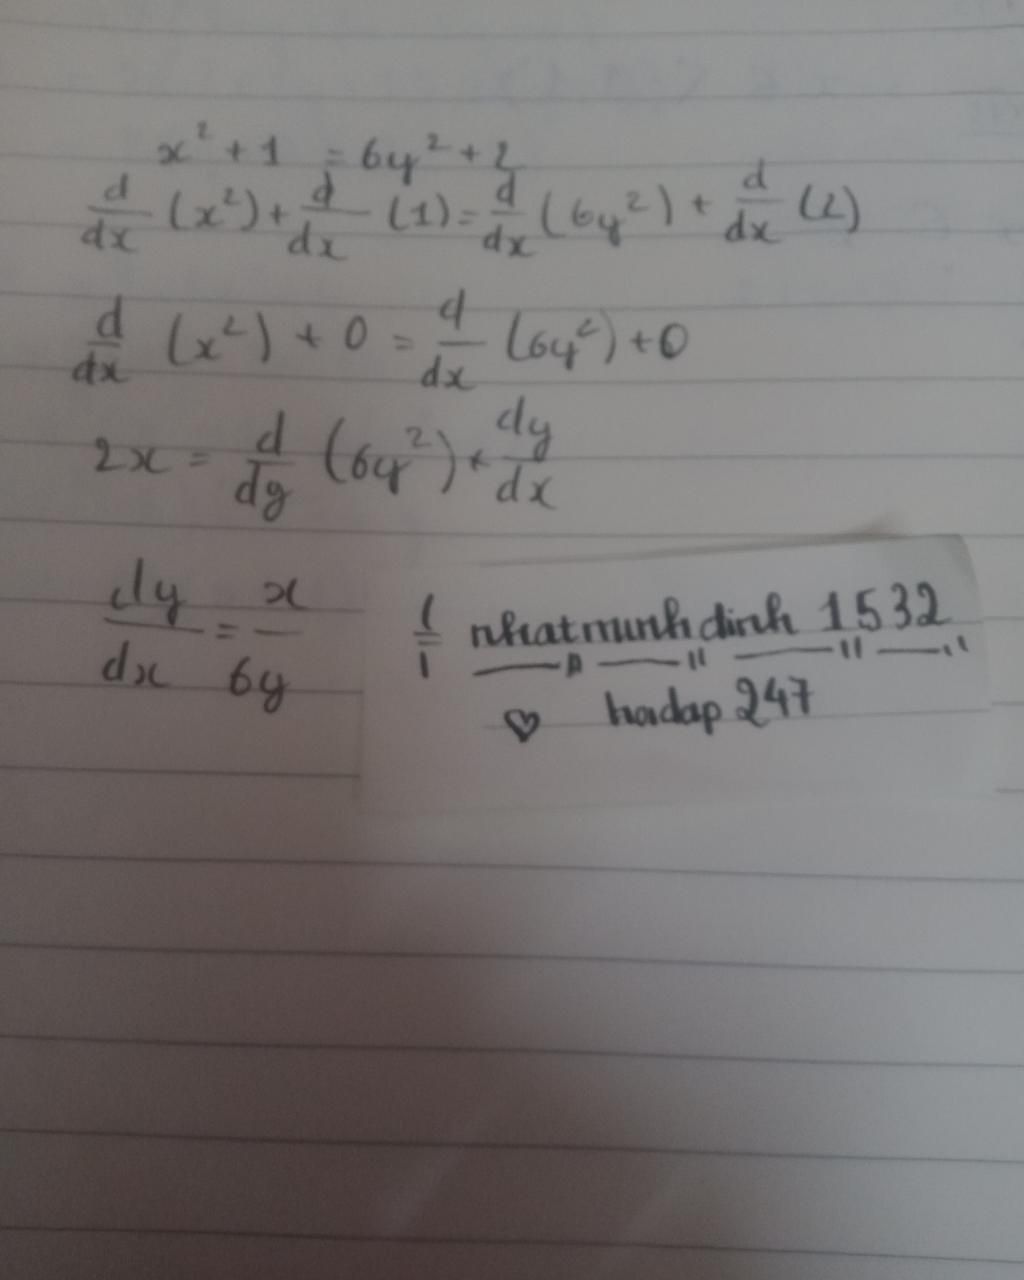 x² + 1 = 6y² + 2
d/dx (x²) + d/dx (1) = d/dx (6y²) + d/dx (2)
d/dx (x²) + 0 = d/dx (6y²) + 0
2x = d/dy (6y²) * dy/dx
dy/dx = x/6y
nhatminhdinh 1532
♡ hadap 247